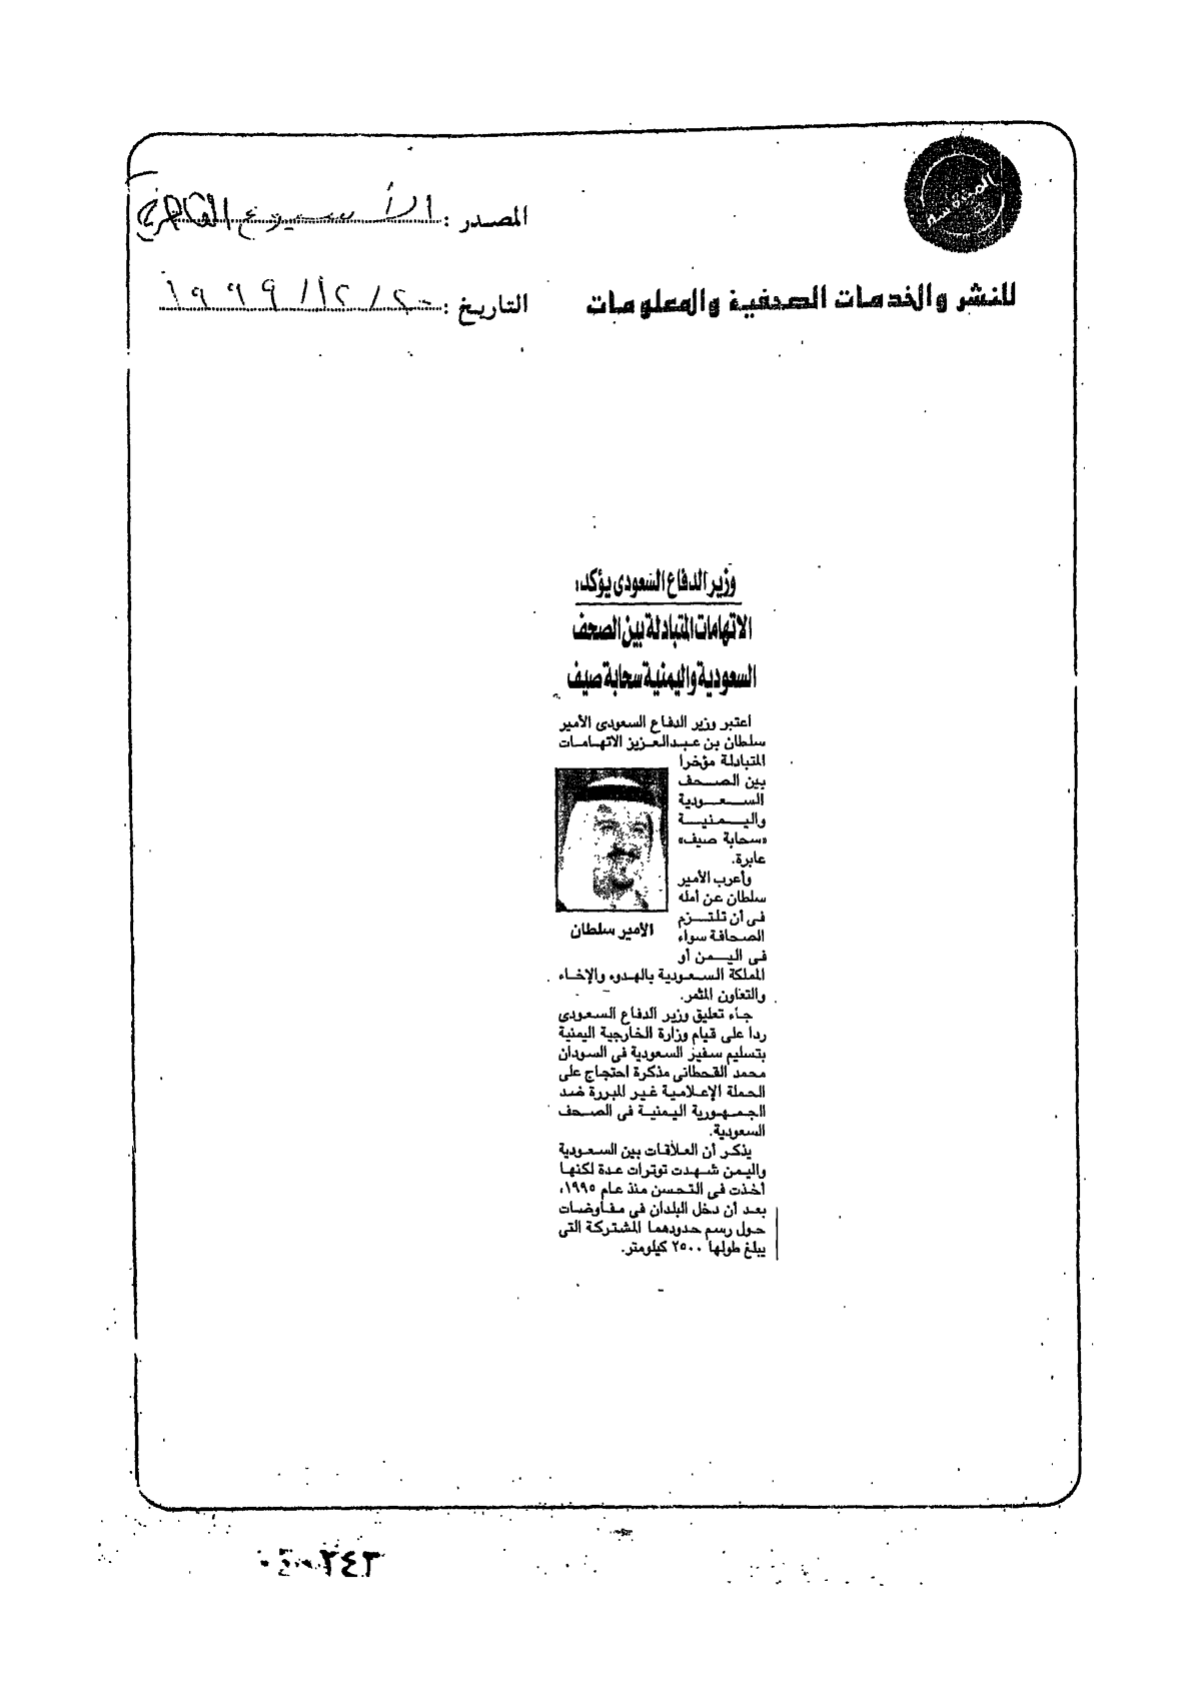 المصدر : الأسبوع القاهرية
للنشر والخدمات الصحفية والمعلومات
التاريخ : ٢٠ / ١٢ / ١٩٩٩
وزير الدفاع السعودى يؤكد:
الاتهامات المتبادلة بين الصحف
السعودية واليمنية سحابة صيف
اعتبر وزير الدفاع السعودى الأمير
سلطان بن عبدالعزيز الاتهامات
المتبادلة مؤخرا
بين الصحف
السعودية
واليمنية
«سحابة صيف»
عابرة.
وأعرب الأمير
سلطان عن أمله
فى أن تلتزم
الصحافة سواء
فى اليمن أو
الأمير سلطان
المملكة السعودية بالهدوء والإخاء
والتعاون المثمر.
جاء تعليق وزير الدفاع السعودى
ردا على قيام وزارة الخارجية اليمنية
بتسليم سفير السعودية فى السودان
محمد القحطانى مذكرة احتجاج على
الحملة الإعلامية غير المبررة ضد
الجمهورية اليمنية فى الصحف
السعودية.
يذكر أن العلاقات بين السعودية
واليمن شهدت توترات عدة لكنها
أخذت فى التحسن منذ عام ١٩٩٥،
بعد أن دخل البلدان فى مفاوضات
حول رسم حدودهما المشتركة التى
يبلغ طولها ٢٥٠٠ كيلومتر.